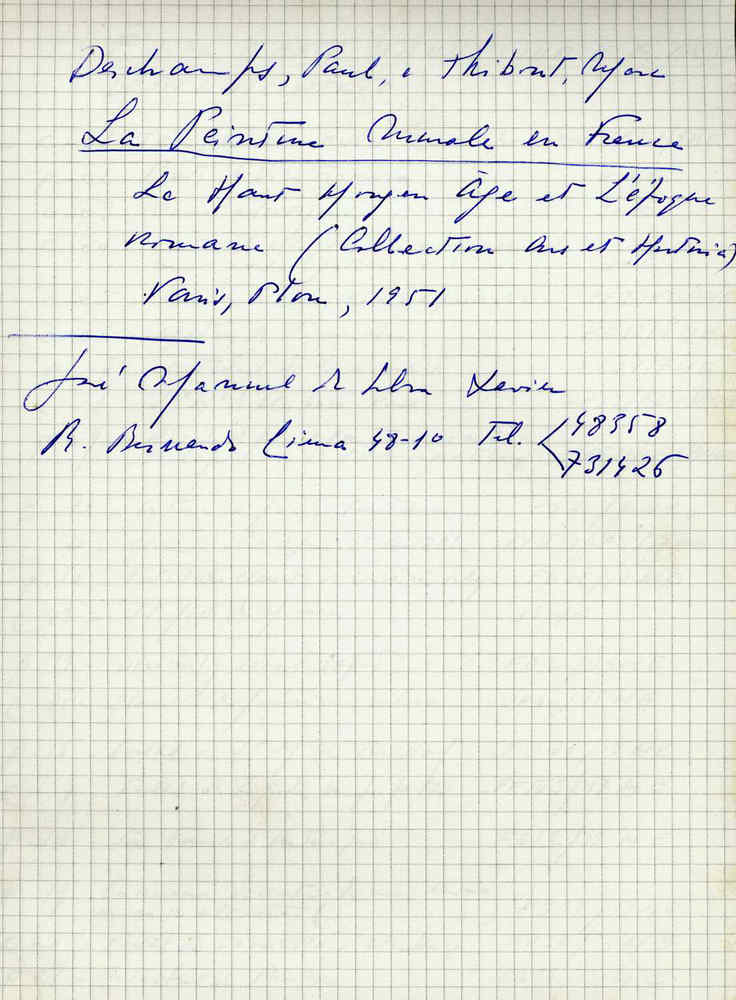 Deschamps, Paul, e Thibout, Marc
La Peinture Murale en France
Le Haut Moyen Âge et L'époque
Romane (Collection Ars et Historia)
Paris, Plon, 1951
José Manuel da Silva Xavier
R. Bernardo Lima 48-1º Tel. 48358
731426